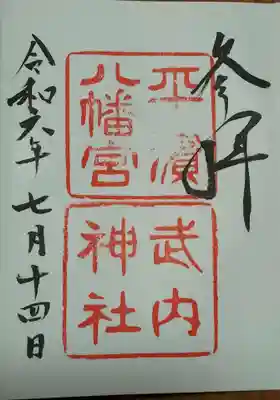 参拝
平濱
八幡宮
武内
神社
令和六年 七月十四日